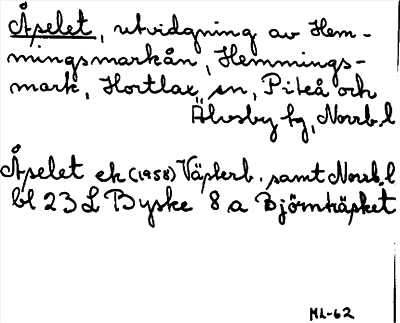 Åselet, utvidgning av Hem-
mingsmarkån, Hemmings-
mark, Hortlax sn, Piteå och
Älvsby tg, Norrb.l
Åselet ek (1958) Västerb. samt Norrb.l
bl 23 L Byske 8 a Björnträsket
ML-62